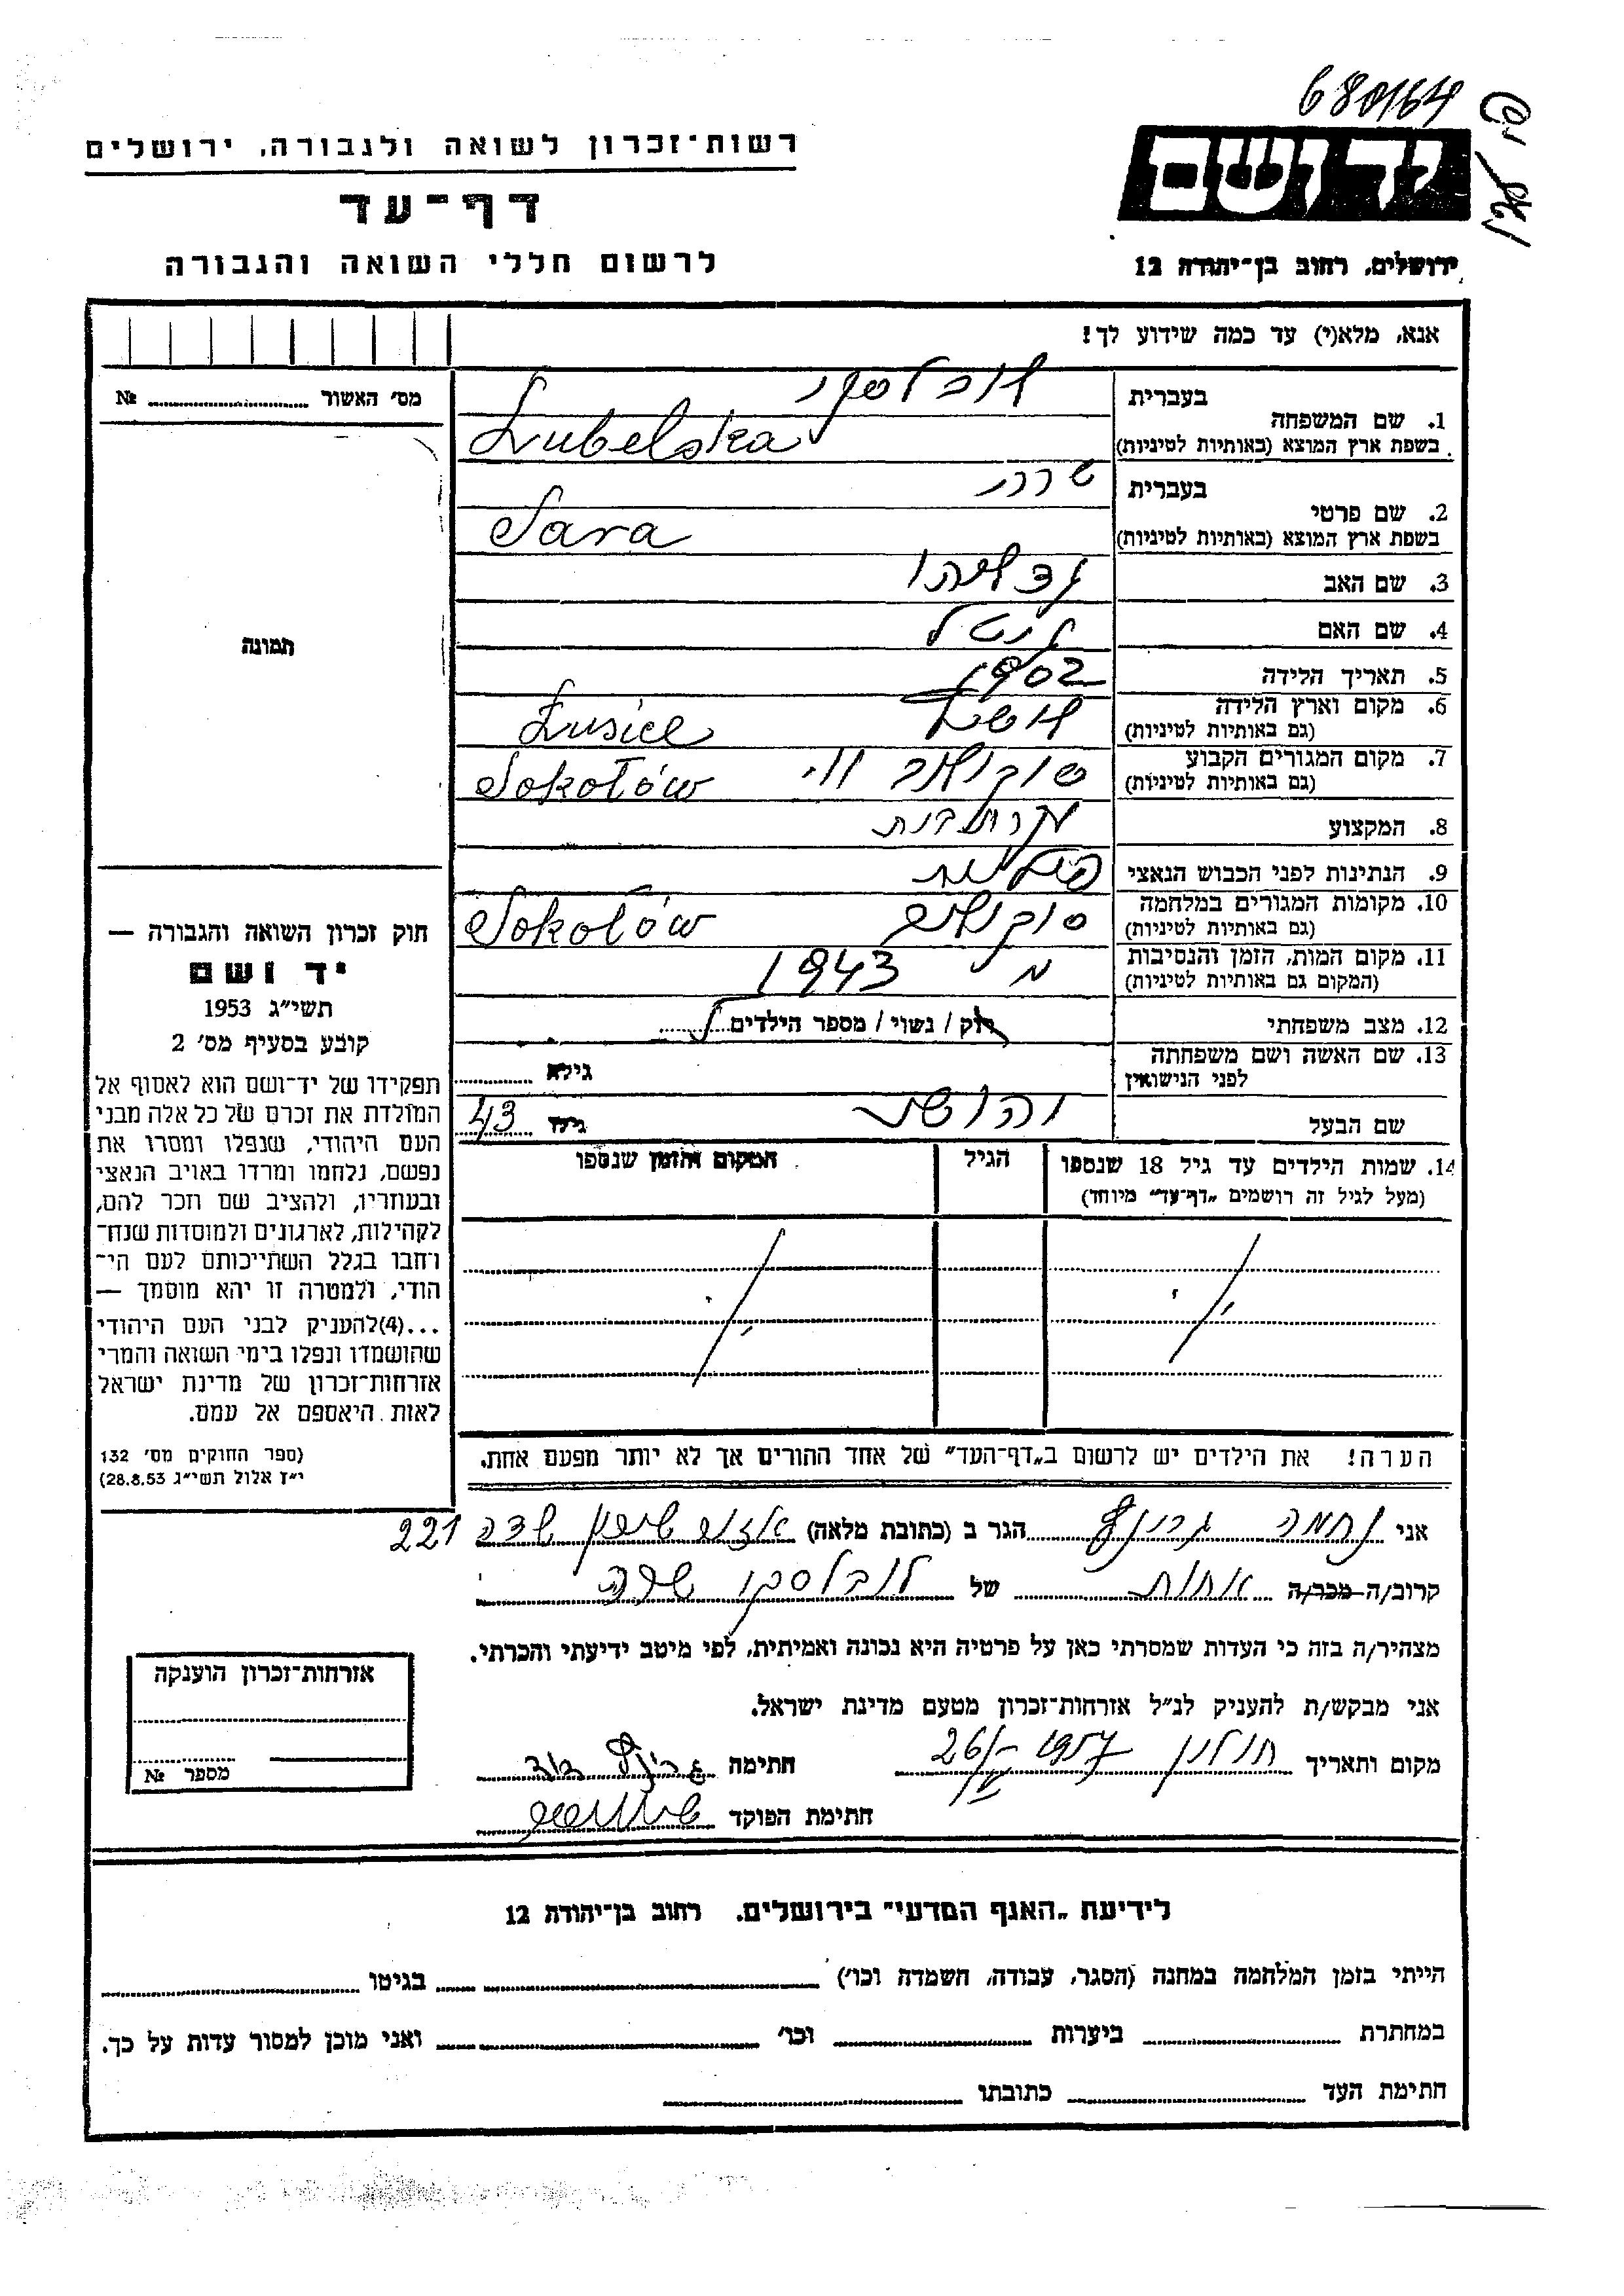 680164
יד ושם
רשות-זכרון לשואה ולגבורה, ירושלים
דף-עד
לרשום חללי השואה והגבורה
ירושלים, רחוב בן-יהודה 12
אנא, מלא(י) עד כמה שידוע לך!
מס' האשור № ........
1. שם המשפחה
בעברית לובלסקי
בשפת ארץ המוצא (באותיות לטיניות) Lubelska
2. שם פרטי
בעברית שרה
בשפת ארץ המוצא (באותיות לטיניות) Sara
3. שם האב גדליהו
4. שם האם
5. תאריך הלידה 1902
6. מקום וארץ הלידה
(גם באותיות לטיניות) Łusice
7. מקום המגורים הקבוע
(גם באותיות לטיניות) סוקולוב Sokołów
8. המקצוע
9. הנתינות לפני הכבוש הנאצי פולנית
10. מקומות המגורים במלחמה
(גם באותיות לטיניות) סוקולוב Sokołów
11. מקום המות, הזמן והנסיבות
(המקום גם באותיות לטיניות) 1943
12. מצב משפחתי רוק / נשוי / מספר הילדים
13. שם האשה ושם משפחתה
לפני הנישואין גילה ........
שם הבעל יהושע גילו 43
14. שמות הילדים עד גיל 18 שנספו
(מעל לגיל זה רושמים „דף-עד" מיוחד)
הגיל
המקום והזמן שנספו
הערה! את הילדים יש לרשום ב„דף-העד" של אחד ההורים אך לא יותר מפעם אחת.
תמונה
חוק זכרון השואה והגבורה —
יד ושם
תשי"ג 1953
קובע בסעיף מס' 2
תפקידו של יד-ושם הוא לאסוף אל
המולדת את זכרם של כל אלה מבני
העם היהודי, שנפלו ומסרו את
נפשם, נלחמו ומרדו באויב הנאצי
ובעוזריו, ולהציב שם וזכר להם,
לקהילות, לארגונים ולמוסדות שנח-
רחבו בגלל השתייכותם לעם הי-
הודי, ולמטרה זו יהא מוסמך —
...(4)להעניק לבני העם היהודי
שהושמדו ונפלו בימי השואה והמרי
אזרחות-זכרון של מדינת ישראל
לאות היאספם אל עמם.
(ספר החוקים מס' 132
י"ז אלול תשי"ג 28.8.53)
אני נחמה הגר ב (כתובת מלאה) שדה 221
קרוב/ה מכר/ה אחות של לובלסקי שרה
מצהיר/ה בזה כי העדות שמסרתי כאן על פרטיה היא נכונה ואמיתית, לפי מיטב ידיעתי והכרתי.
אני מבקש/ת להעניק לנ"ל אזרחות-זכרון מטעם מדינת ישראל.
מקום ותאריך חולון 1957 26/ חתימה
חתימת הפוקד
אזרחות-זכרון הוענקה
מספר №
לידיעת „האגף המדעי" בירושלים, רחוב בן-יהודה 12
הייתי בזמן המלחמה במחנה (הסגר, עבודה, השמדה וכו') ........ בגיטו ........
במחתרת ........ ביערות ........ וכו' ........ ואני מוכן למסור עדות על כך.
חתימת העד ........ כתובתו ........